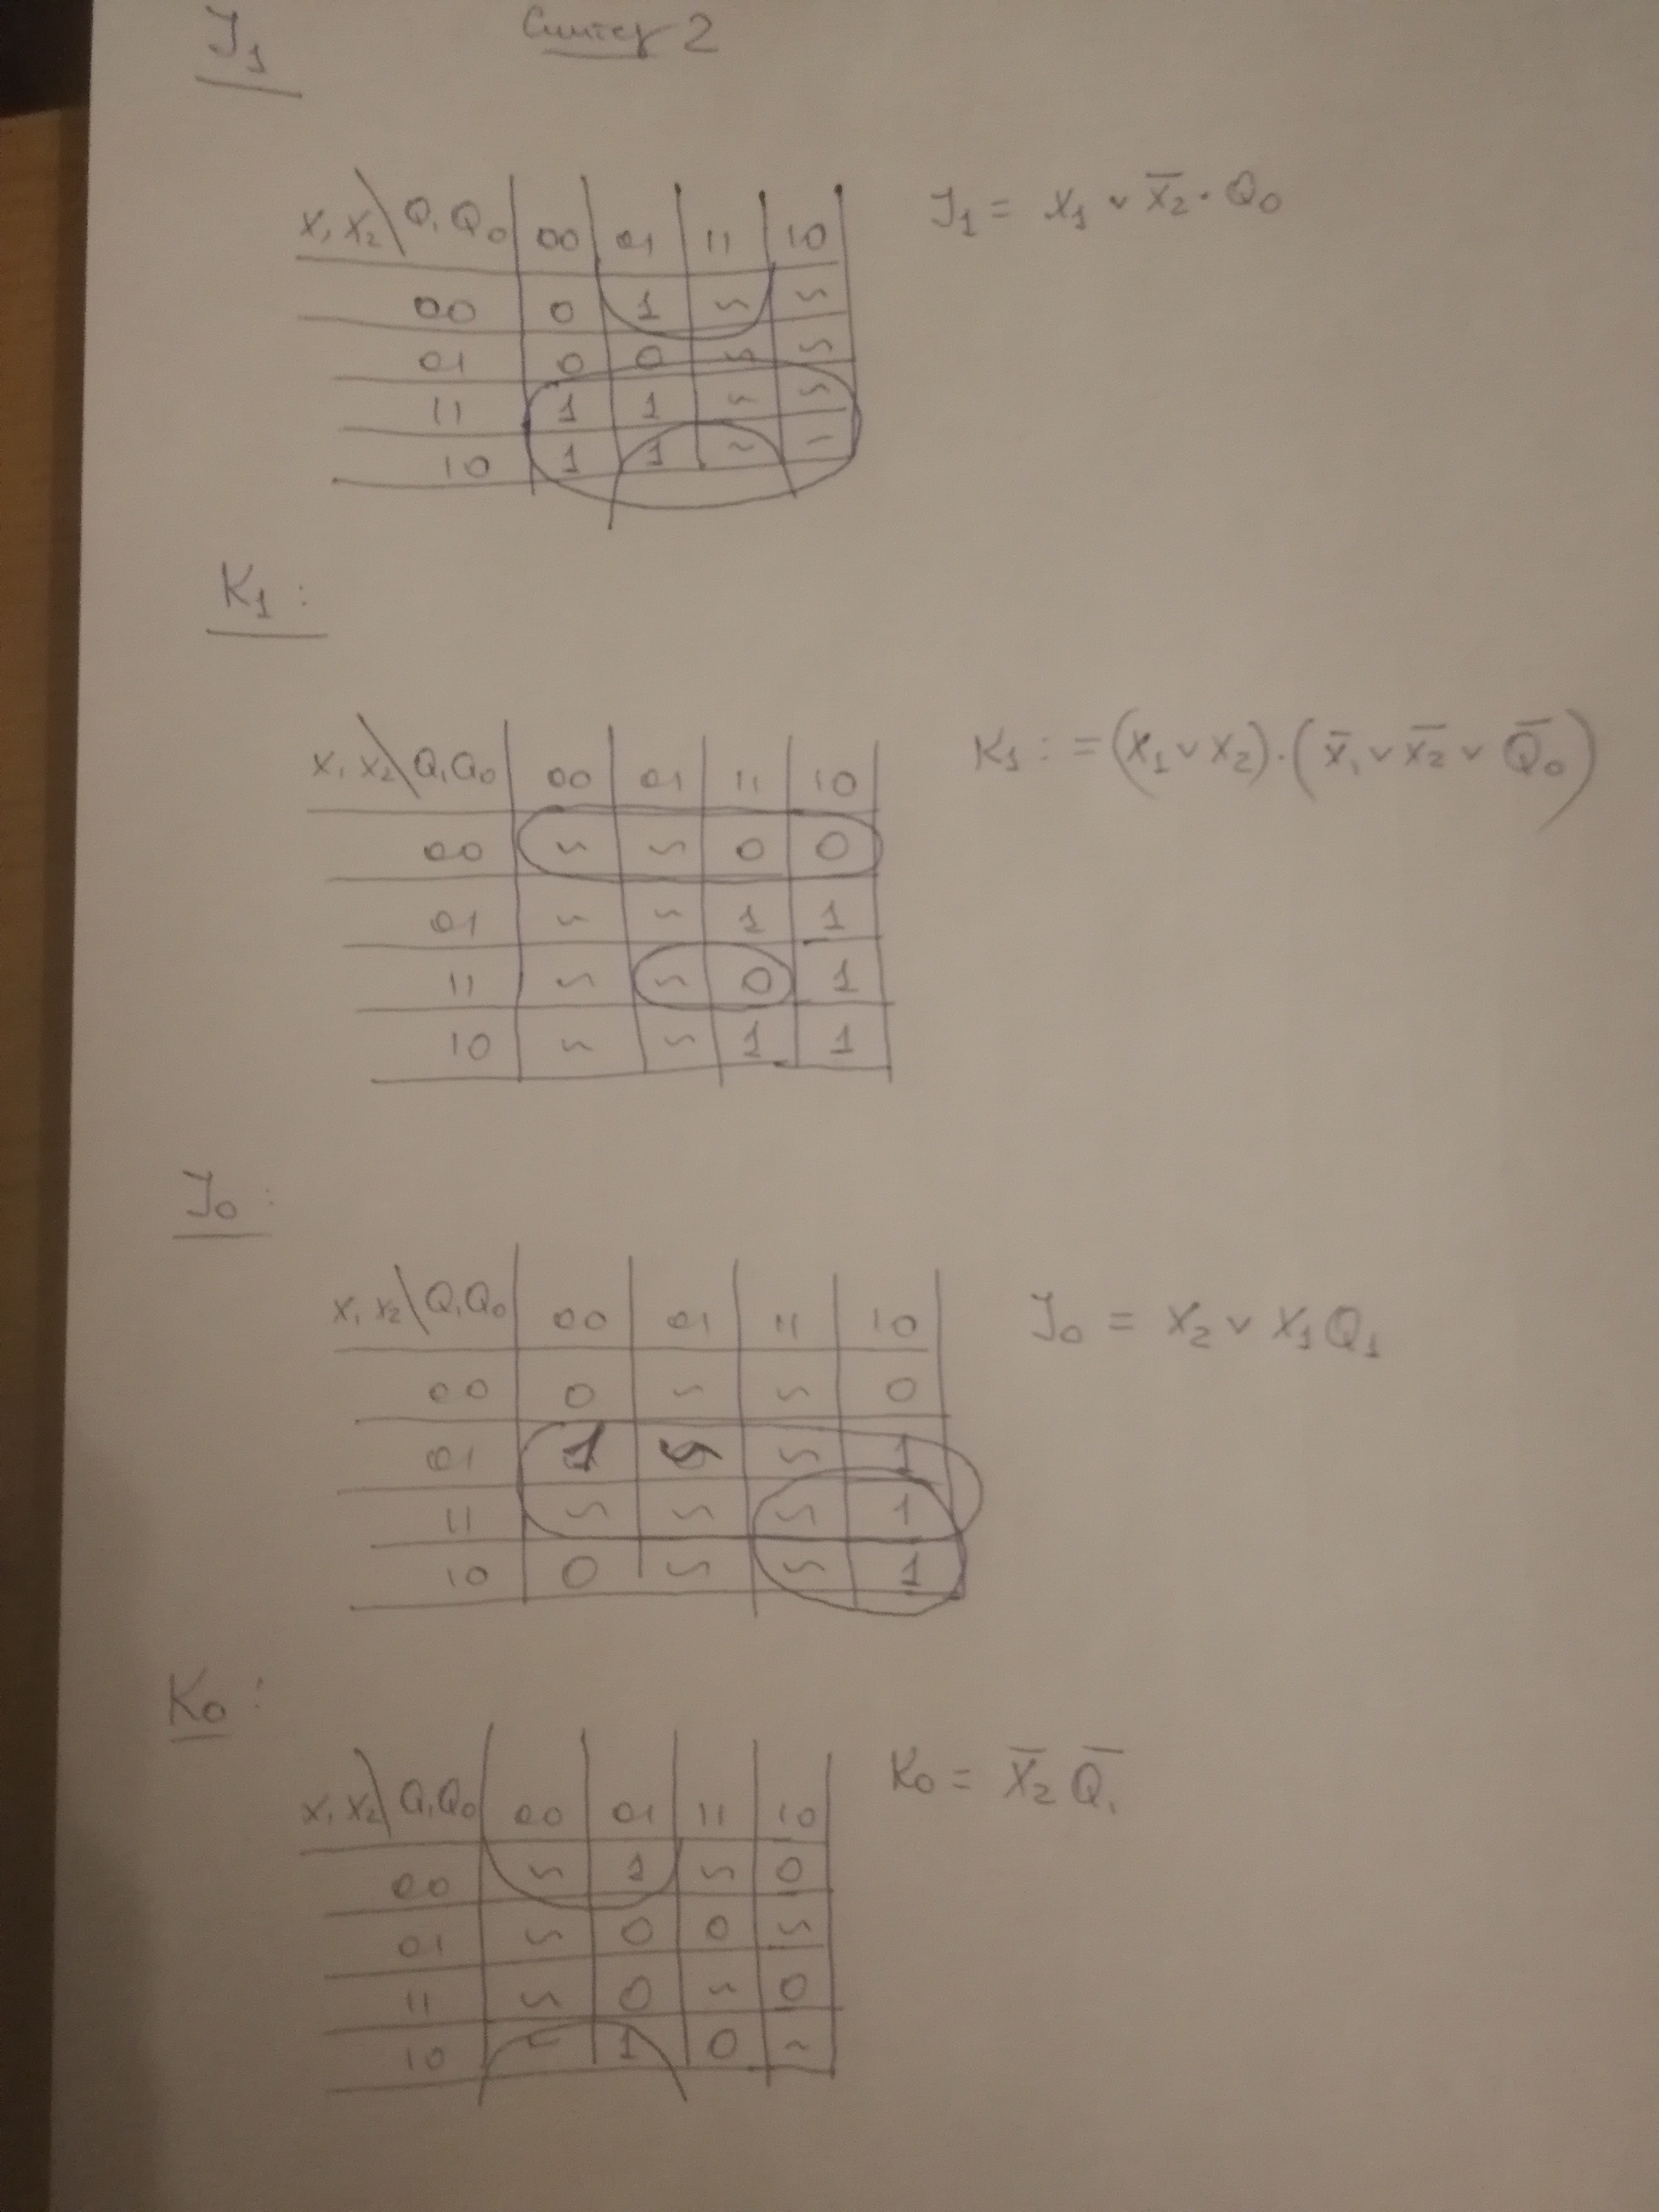 J₁ Синтез 2
x₁ x₂ \ Q₁Q₀ 00 01 11 10
00 0 1 ~ ~
01 0 0 ~ ~
11 1 1 ~ ~
10 1 1 ~ ~
J₁ = x₁ ∨ x̅₂ · Q₀
K₁ :
x₁ x₂ \ Q₁Q₀ 00 01 11 10
00 ~ ~ 0 0
01 ~ ~ 1 1
11 ~ ~ 0 1
10 ~ ~ 1 1
K₁ : = (x₁ ∨ x₂) · (x̅₁ ∨ x̅₂ ∨ Q̅₀)
J₀ :
x₁ x₂ \ Q₁Q₀ 00 01 11 10
00 0 ~ ~ 0
01 1 ~ ~ 1
11 ~ ~ ~ 1
10 0 ~ ~ 1
J₀ = x₂ ∨ x₁Q₁
K₀ :
x₁ x₂ \ Q₁Q₀ 00 01 11 10
00 ~ 1 ~ 0
01 ~ 0 0 ~
11 ~ 0 ~ 0
10 ~ 1 0 ~
K₀ = x̅₂ Q̅₁